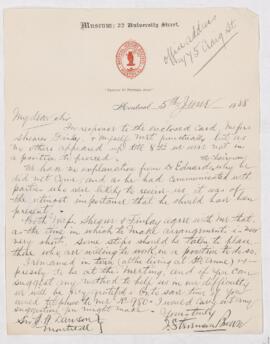 Museum: 22 University Street.
office address
475 Craig St
Montreal 5th June 1888
My dear Sir
In response to the enclosed card, Messrs
Shearer, Finlay & myself met punctually but as
no others appeared up till 8 we were not in
a position to proceed.
We have no explanation from Dr Edwards why he
did not come, and as he had communicated with
parties who were likely to it was of
the utmost importance that he should have been
present.
Both Messrs Shearer & Finlay agree with me that
as the time in which to make arrangements is now
very short, some steps should be taken to have
those who are willing to work in a position to do so.
I remained in town expressly to be at this Meeting, and if you can
suggest any method to help us in our difficulty
we will be very grateful. Or to save time if you
would telephone to me No 980. I would carry out any
suggestion you might make.
Yours truly
J. Stevenson Brown
Sir J W Dawson
Montreal